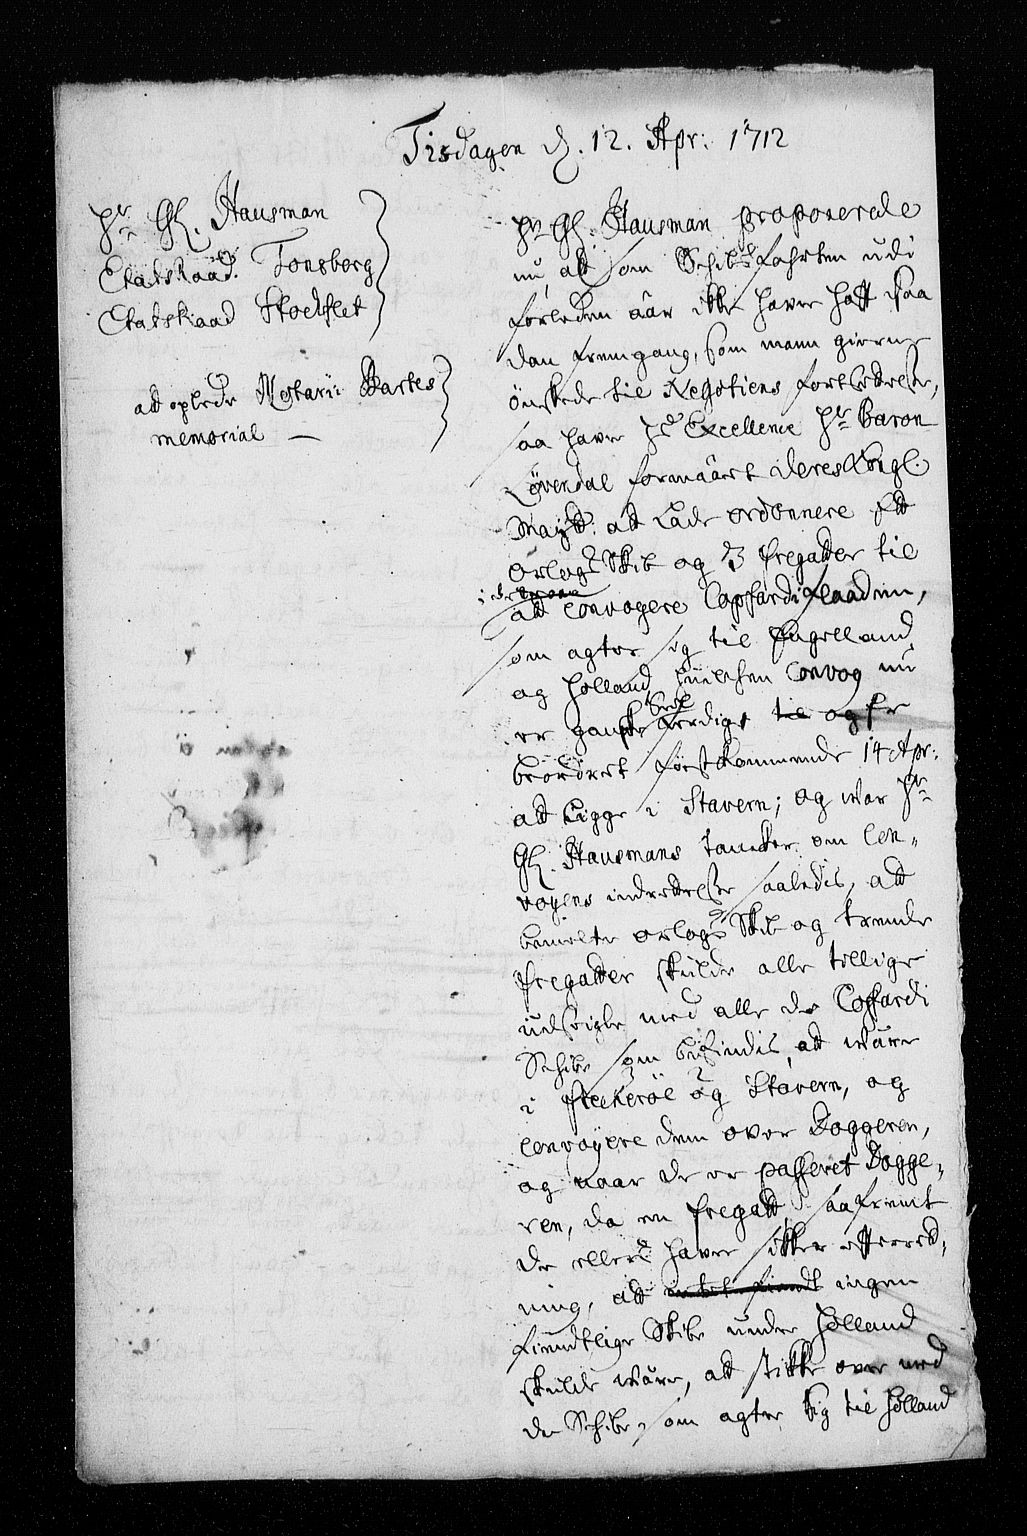 Tisdagen d. 12. Apr: 1712
Hr Gl. Hausman
Etatsraad Tonsberg
Etatsraad Stockflet
att oplede Notarii Bartes
memorial —
Hr Gl. Hausman proponerede
nu, att som Schibsfahrten udi
forleden aar ikke haver hatt saa
dan fremgang, som mann gierne
önskede til Negotiens fortsettelse,
saa haver Hs Excellence Hr Baron
Lövendal formaaet deres Kongl.
Mayst: att lade ordonnere Ett
orlogs Skib og 3 fregatter til
att convoyere Copfardi flaaden,
som agter sig til Engelland
og Holland, huilchen Convoy nu
er ganske seil ferdige til og er
beordret förstkommende 14 Apr:
att ligge i Stavern; og war Hr
Gl. Hausmans tancker om Con-
voyens indrettelse saaledis, att
bemelte orlogs Skib og trende
fregatter skulde alle tillige
udseigle med alle de Coffardi
Schibe som befindis att være
i Fleckeröe og Stavern, og
convoyere dem over Doggeren,
og naar de er passeret Dogge-
ren, da en fregatt, saafremt
de ellers haver sikker efterret-
ning, att intet fiendt ingen
fiendtlige Skibe under Holland
skulde være, att stikke over med
de Schibe, som agter sig til Holland